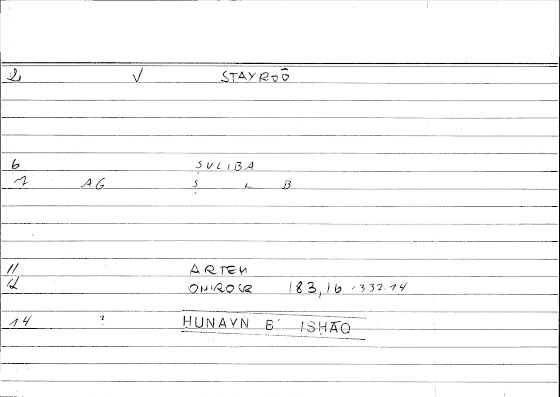 2 V STAYROŌ
6 ṢULIBA
7 AG Ṣ L B
11 ARTEM
12 ONIROCR 183,16 · 332.14
14 ? HUNAYN B. ISḤĀQ